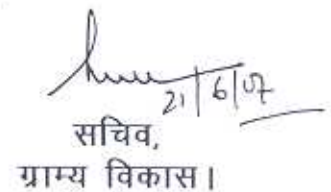 21/6/07
सचिव,
ग्राम्य विकास।